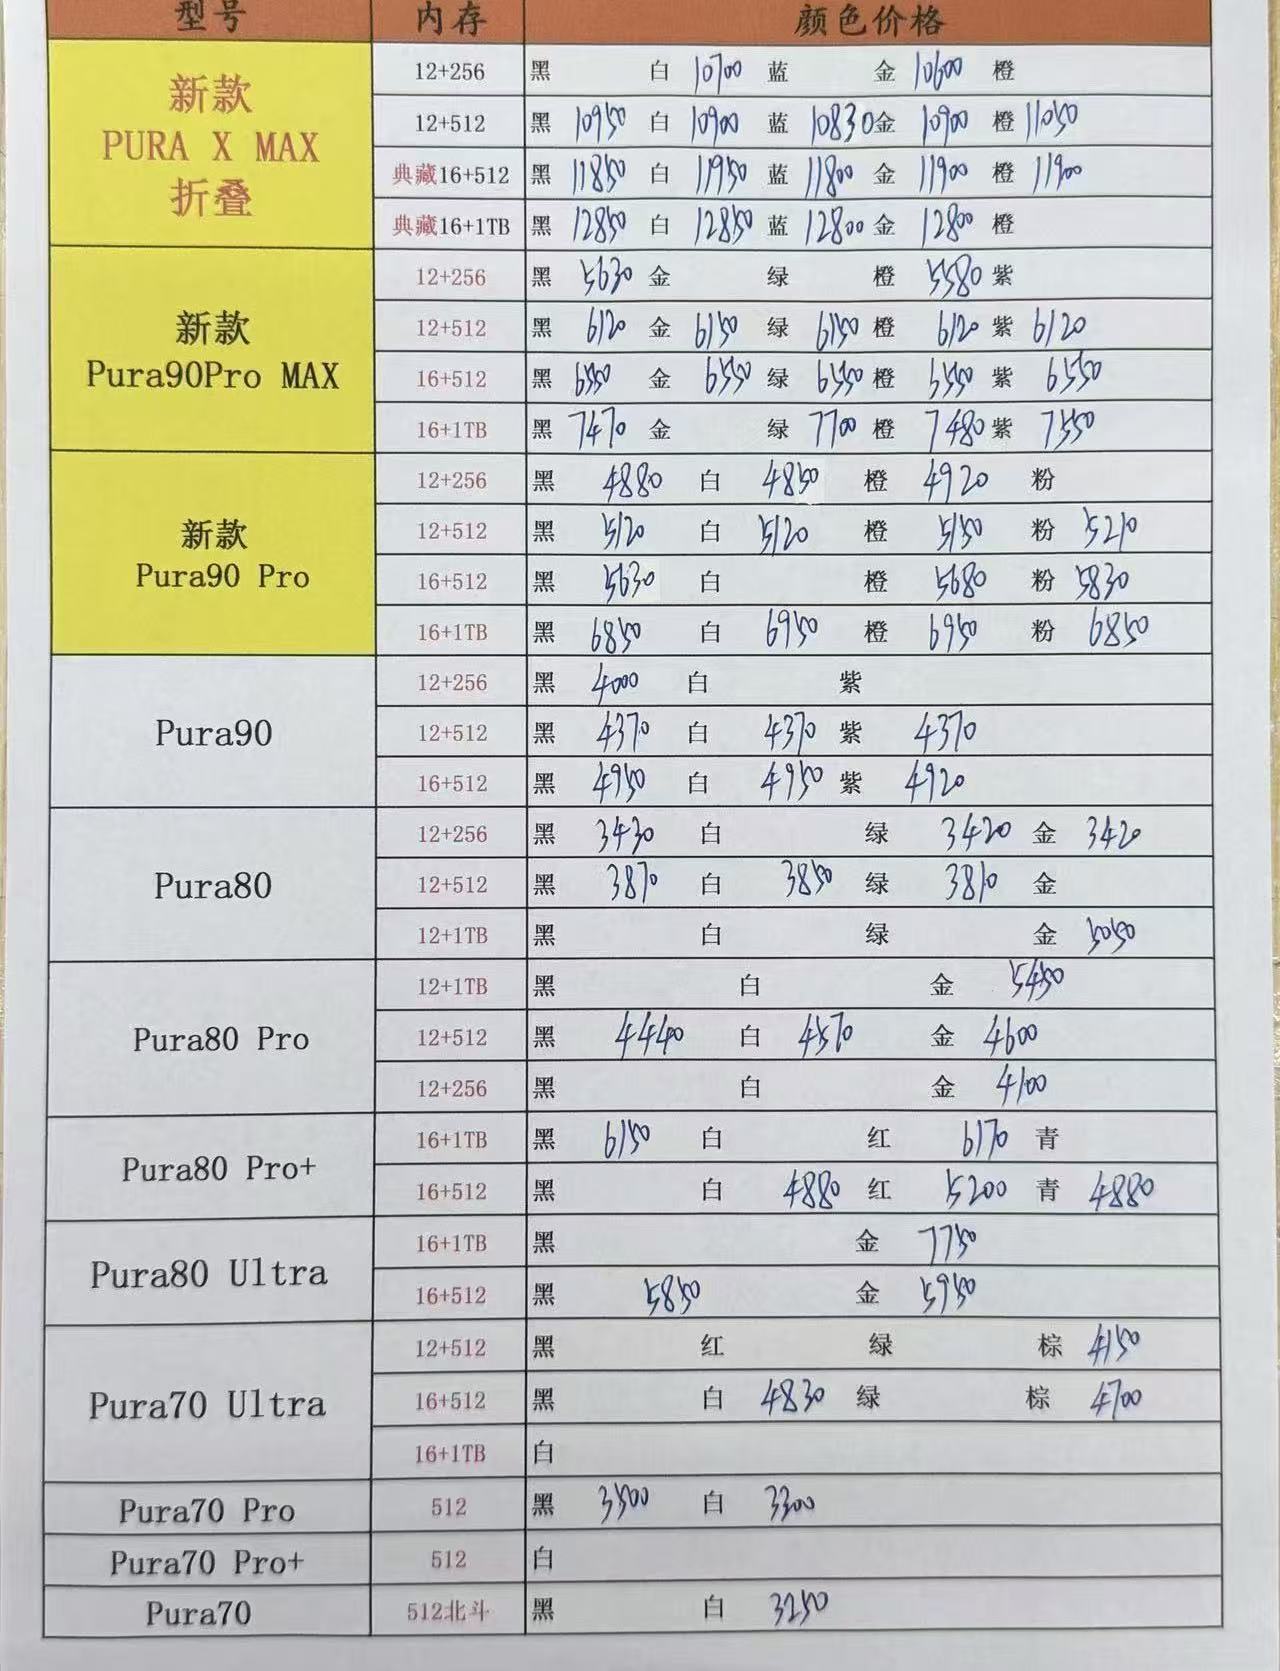 型号 内存 颜色价格
新款 PURA X MAX 折叠
12+256 黑 白 10700 蓝 金 10600 橙
12+512 黑 10950 白 10900 蓝 10830 金 10900 橙 11050
典藏16+512 黑 11850 白 11950 蓝 11800 金 11900 橙 11900
典藏16+1TB 黑 12850 白 12850 蓝 12800 金 12800 橙
新款 Pura90Pro MAX
12+256 黑 5630 金 绿 橙 5580 紫
12+512 黑 6120 金 6150 绿 6150 橙 6120 紫 6120
16+512 黑 6550 金 6550 绿 6550 橙 6550 紫 6550
16+1TB 黑 7470 金 绿 7700 橙 7480 紫 7550
新款 Pura90 Pro
12+256 黑 4880 白 4850 橙 4920 粉
12+512 黑 5120 白 5120 橙 5150 粉 5210
16+512 黑 5630 白 橙 5680 粉 5830
16+1TB 黑 6850 白 6950 橙 6950 粉 6850
Pura90
12+256 黑 4000 白 紫
12+512 黑 4370 白 4370 紫 4370
16+512 黑 4950 白 4950 紫 4920
Pura80
12+256 黑 3430 白 绿 3420 金 3420
12+512 黑 3870 白 3850 绿 3810 金
12+1TB 黑 白 绿 金 5050
Pura80 Pro
12+1TB 黑 白 金 5450
12+512 黑 4440 白 4570 金 4600
12+256 黑 白 金 4100
Pura80 Pro+
16+1TB 黑 6150 白 红 6170 青
16+512 黑 白 4880 红 5200 青 4880
Pura80 Ultra
16+1TB 黑 金 7750
16+512 黑 5850 金 5950
Pura70 Ultra
12+512 黑 红 绿 棕 4150
16+512 黑 白 4830 绿 棕 4700
16+1TB 白
Pura70 Pro 512 黑 3500 白 3300
Pura70 Pro+ 512 白
Pura70 512北斗 黑 白 3250